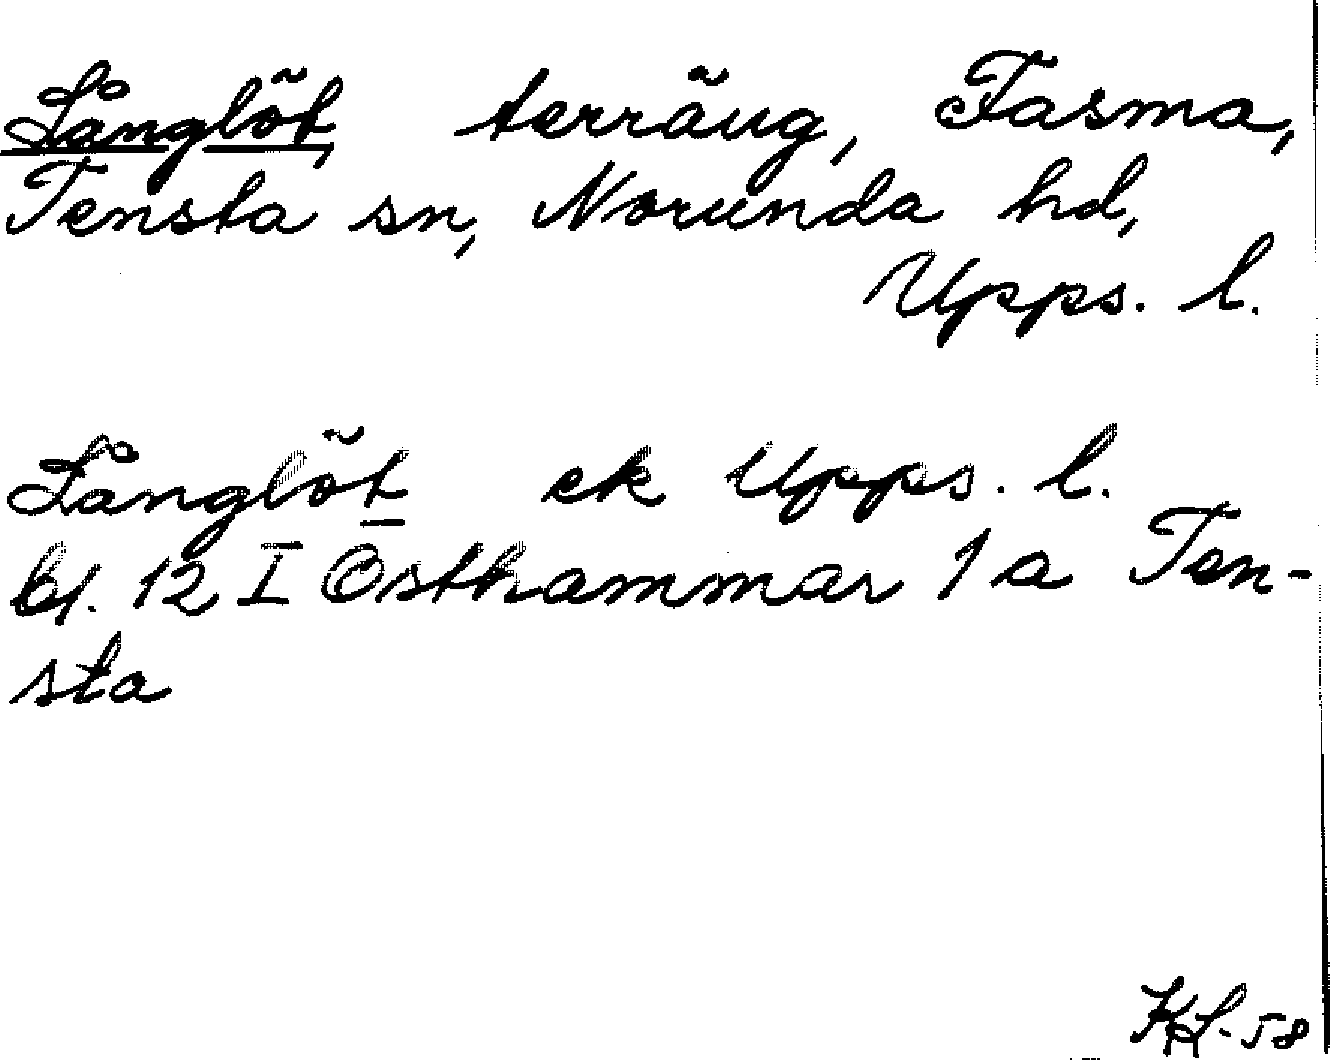 Långlöt, terräng, Fasma,
Tensta sn, Norunda hd,
Upps. l.
Långlöt ek Upps. l.
bl. 12 I Östhammar 1 a Ten-
sta
KL-58